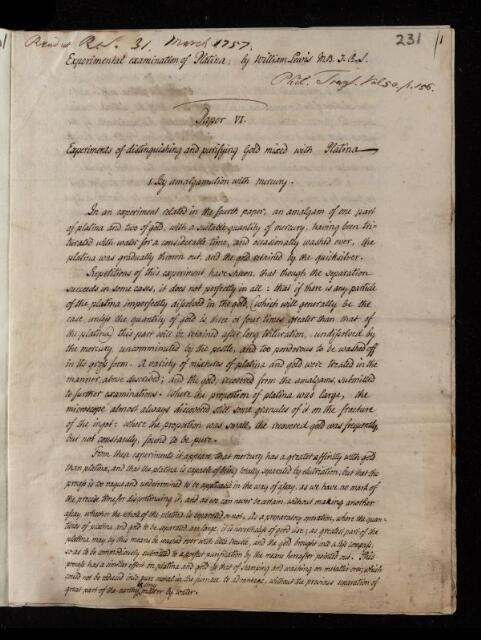 Read at R.S. 31. March 1757.
231
1
Experimental examination of Platina; by William Lewis MB. F.R.S.
Phil. Trans. Vol 50. p. 156.
Paper VI.
Experiments of distinguishing and purifying Gold mixed with Platina
1. By amalgamation with mercury.
In an experiment related in the fourth paper, an amalgam of one part
of platina and two of gold, with a suitable quantity of mercury, having been tri-
turated with water for a considerable time, and occasionally washed over, the
platina was gradually thrown out, and the gold retained by the quicksilver.
Repetitions of this experiment have shewn, that though the separation
succeeds in some cases, it does not perfectly in all: that if there is any particle
of the platina imperfectly dissolved in the gold, (which will generally be the
case unless the quantity of gold is three or four times greater than that of
the platina) this part will be retained after long trituration, undissolved by
the mercury, uncomminuted by the pestle, and too ponderous to be washed off
in its gross form. A variety of mixtures of platina and gold were treated in the
manner above described; and the gold, recovered from the amalgams, submitted
to further examinations. Where the proportion of platina was large, the
microscope almost always discovered still some granules of it on the fracture
of the ingot: where the proportion was small, the recovered gold was frequently,
but not constantly, found to be pure.
From these experiments it appears, that mercury has a greater affinity with gold
than platina; and that the platina is capable of being totally separated by elutriation; but that the
process is too vague and undetermined to be applicable in the way of assay, as we have no mark of
the precise time for discontinuing it, and as we can never be certain, without making another
assay, whether the whole of the platina is separated or not. As a preparatory operation, where the quan-
tities of platina and gold to be separated are large, it is nevertheless of good use; as greatest part of the
platina may by this means be washed over with little trouble, and the gold brought into a less compass,
so as to be commodiously submitted to a perfect purification by the means hereafter pointed out. This
process has a similar effect on platina and gold to that of stamping and washing on metallic ores; which
could not be reduced into pure metal in the furnace to advantage, without the previous separation of
great part of the earthy matter by water.